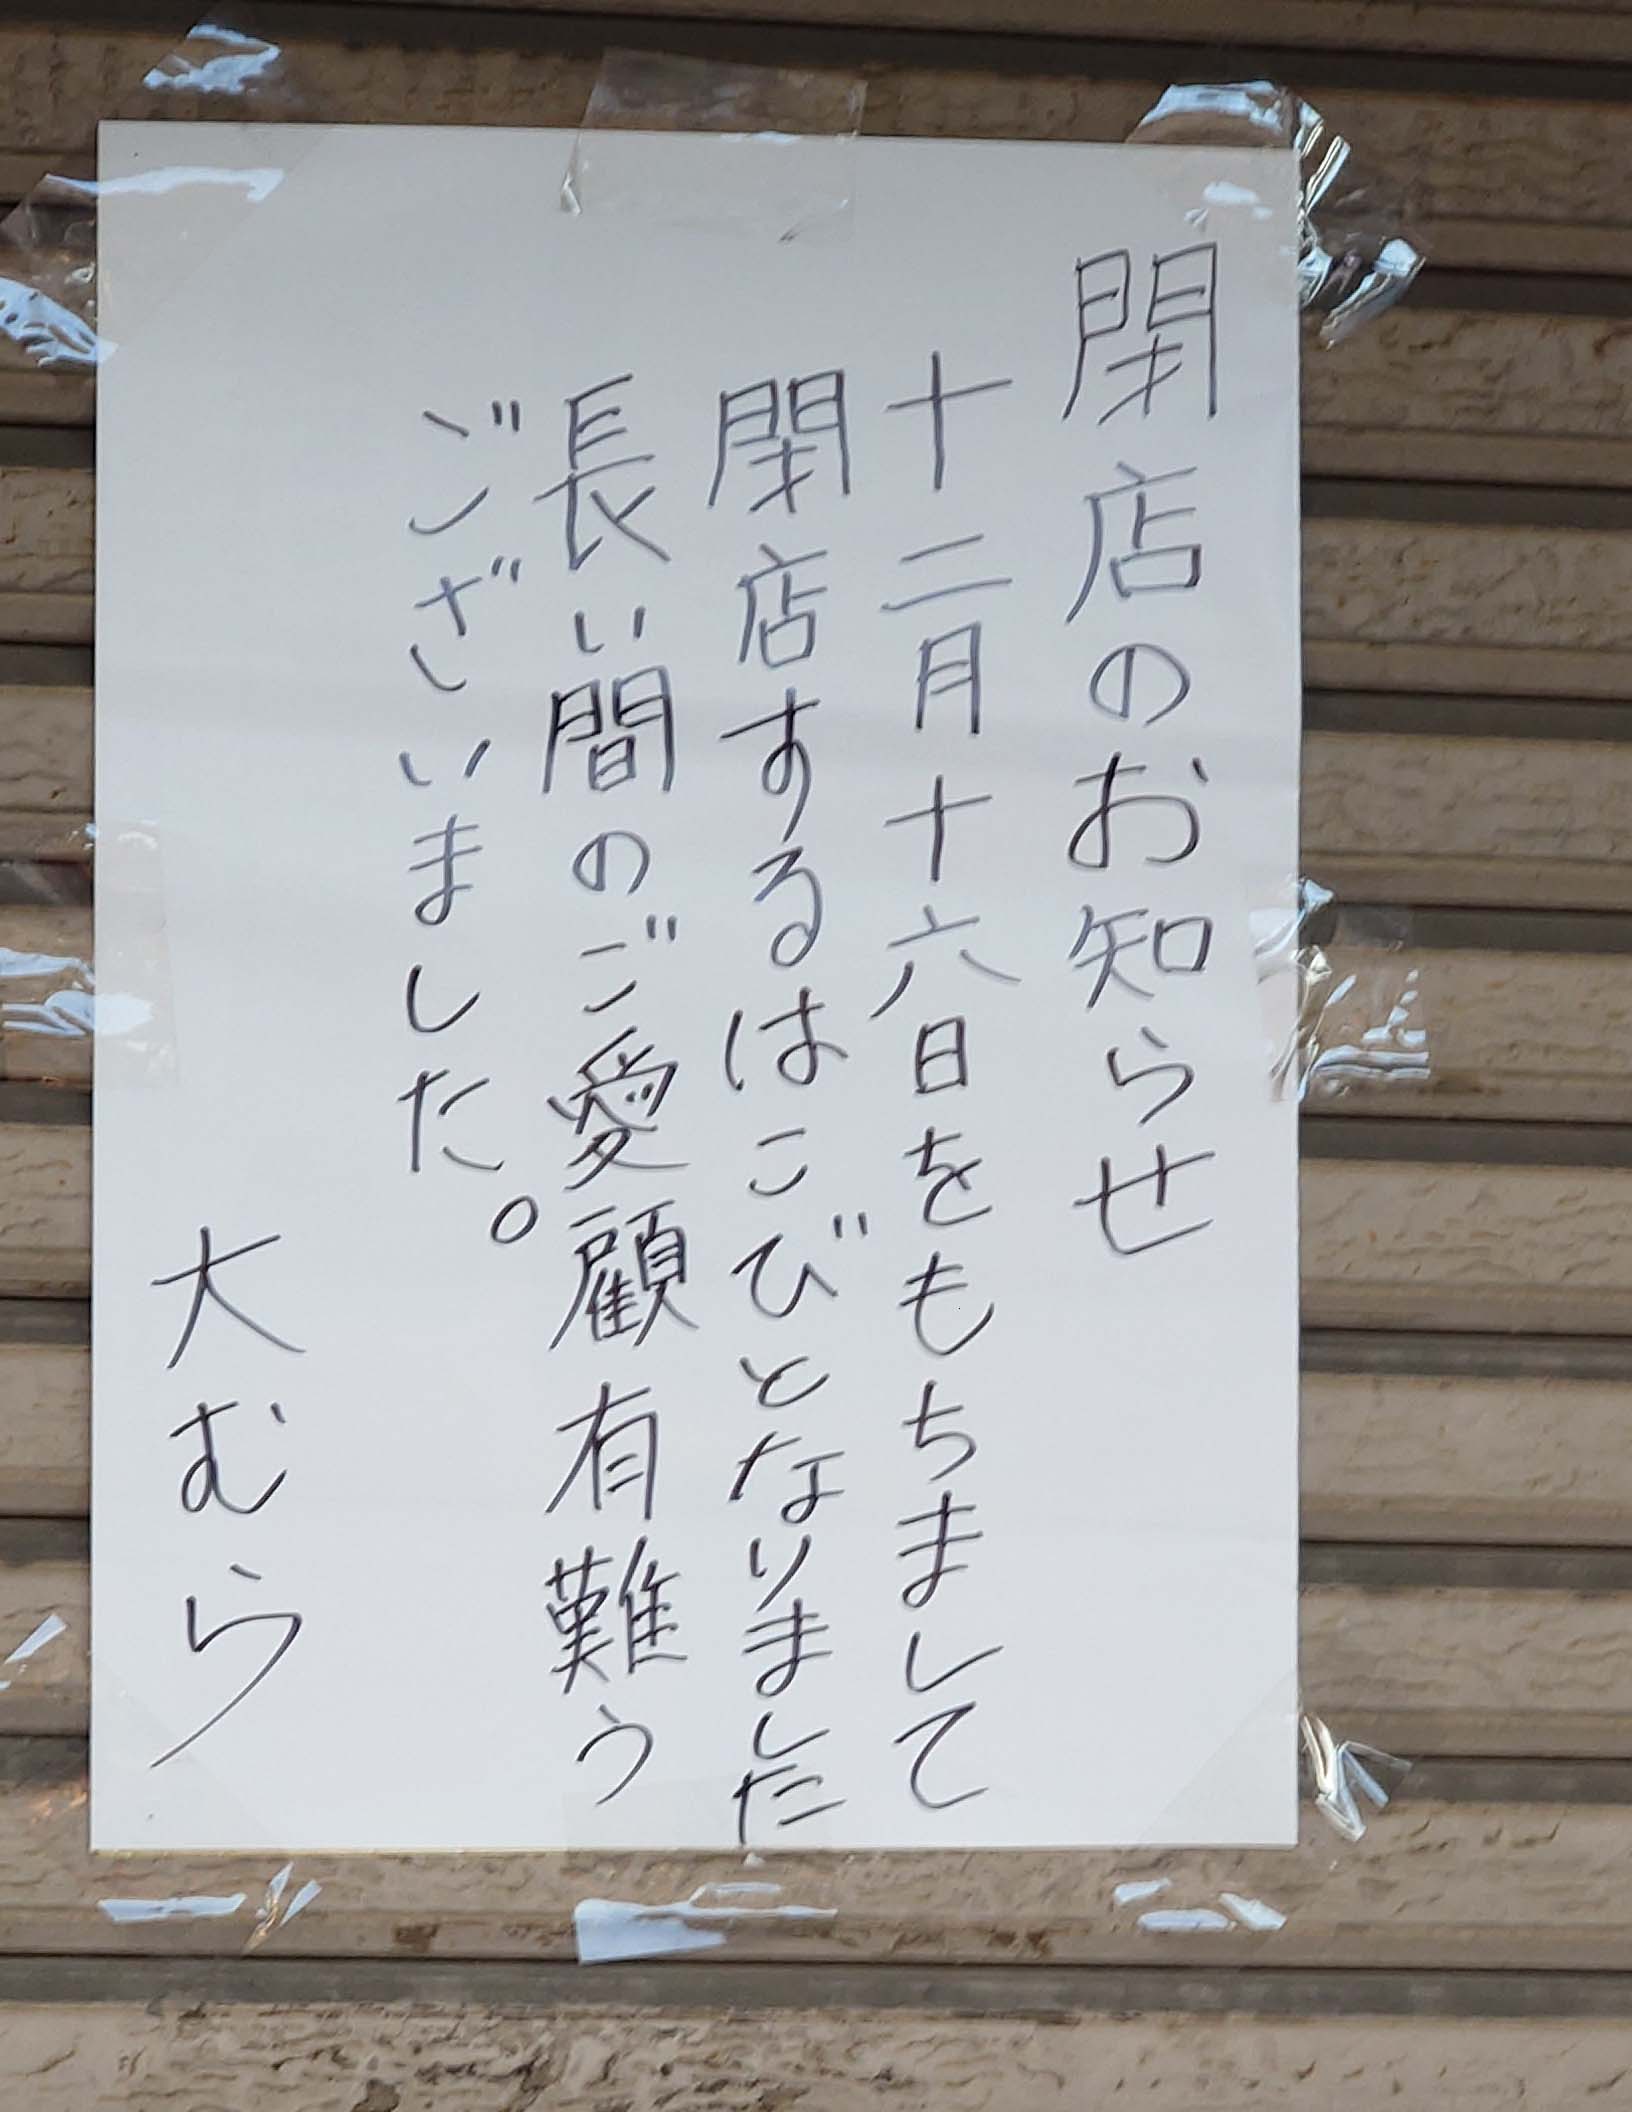 閉店のお知らせ
十二月十六日をもちまして
閉店するはこびとなりました
長い間のご愛顧有難う
ございました。
大むら